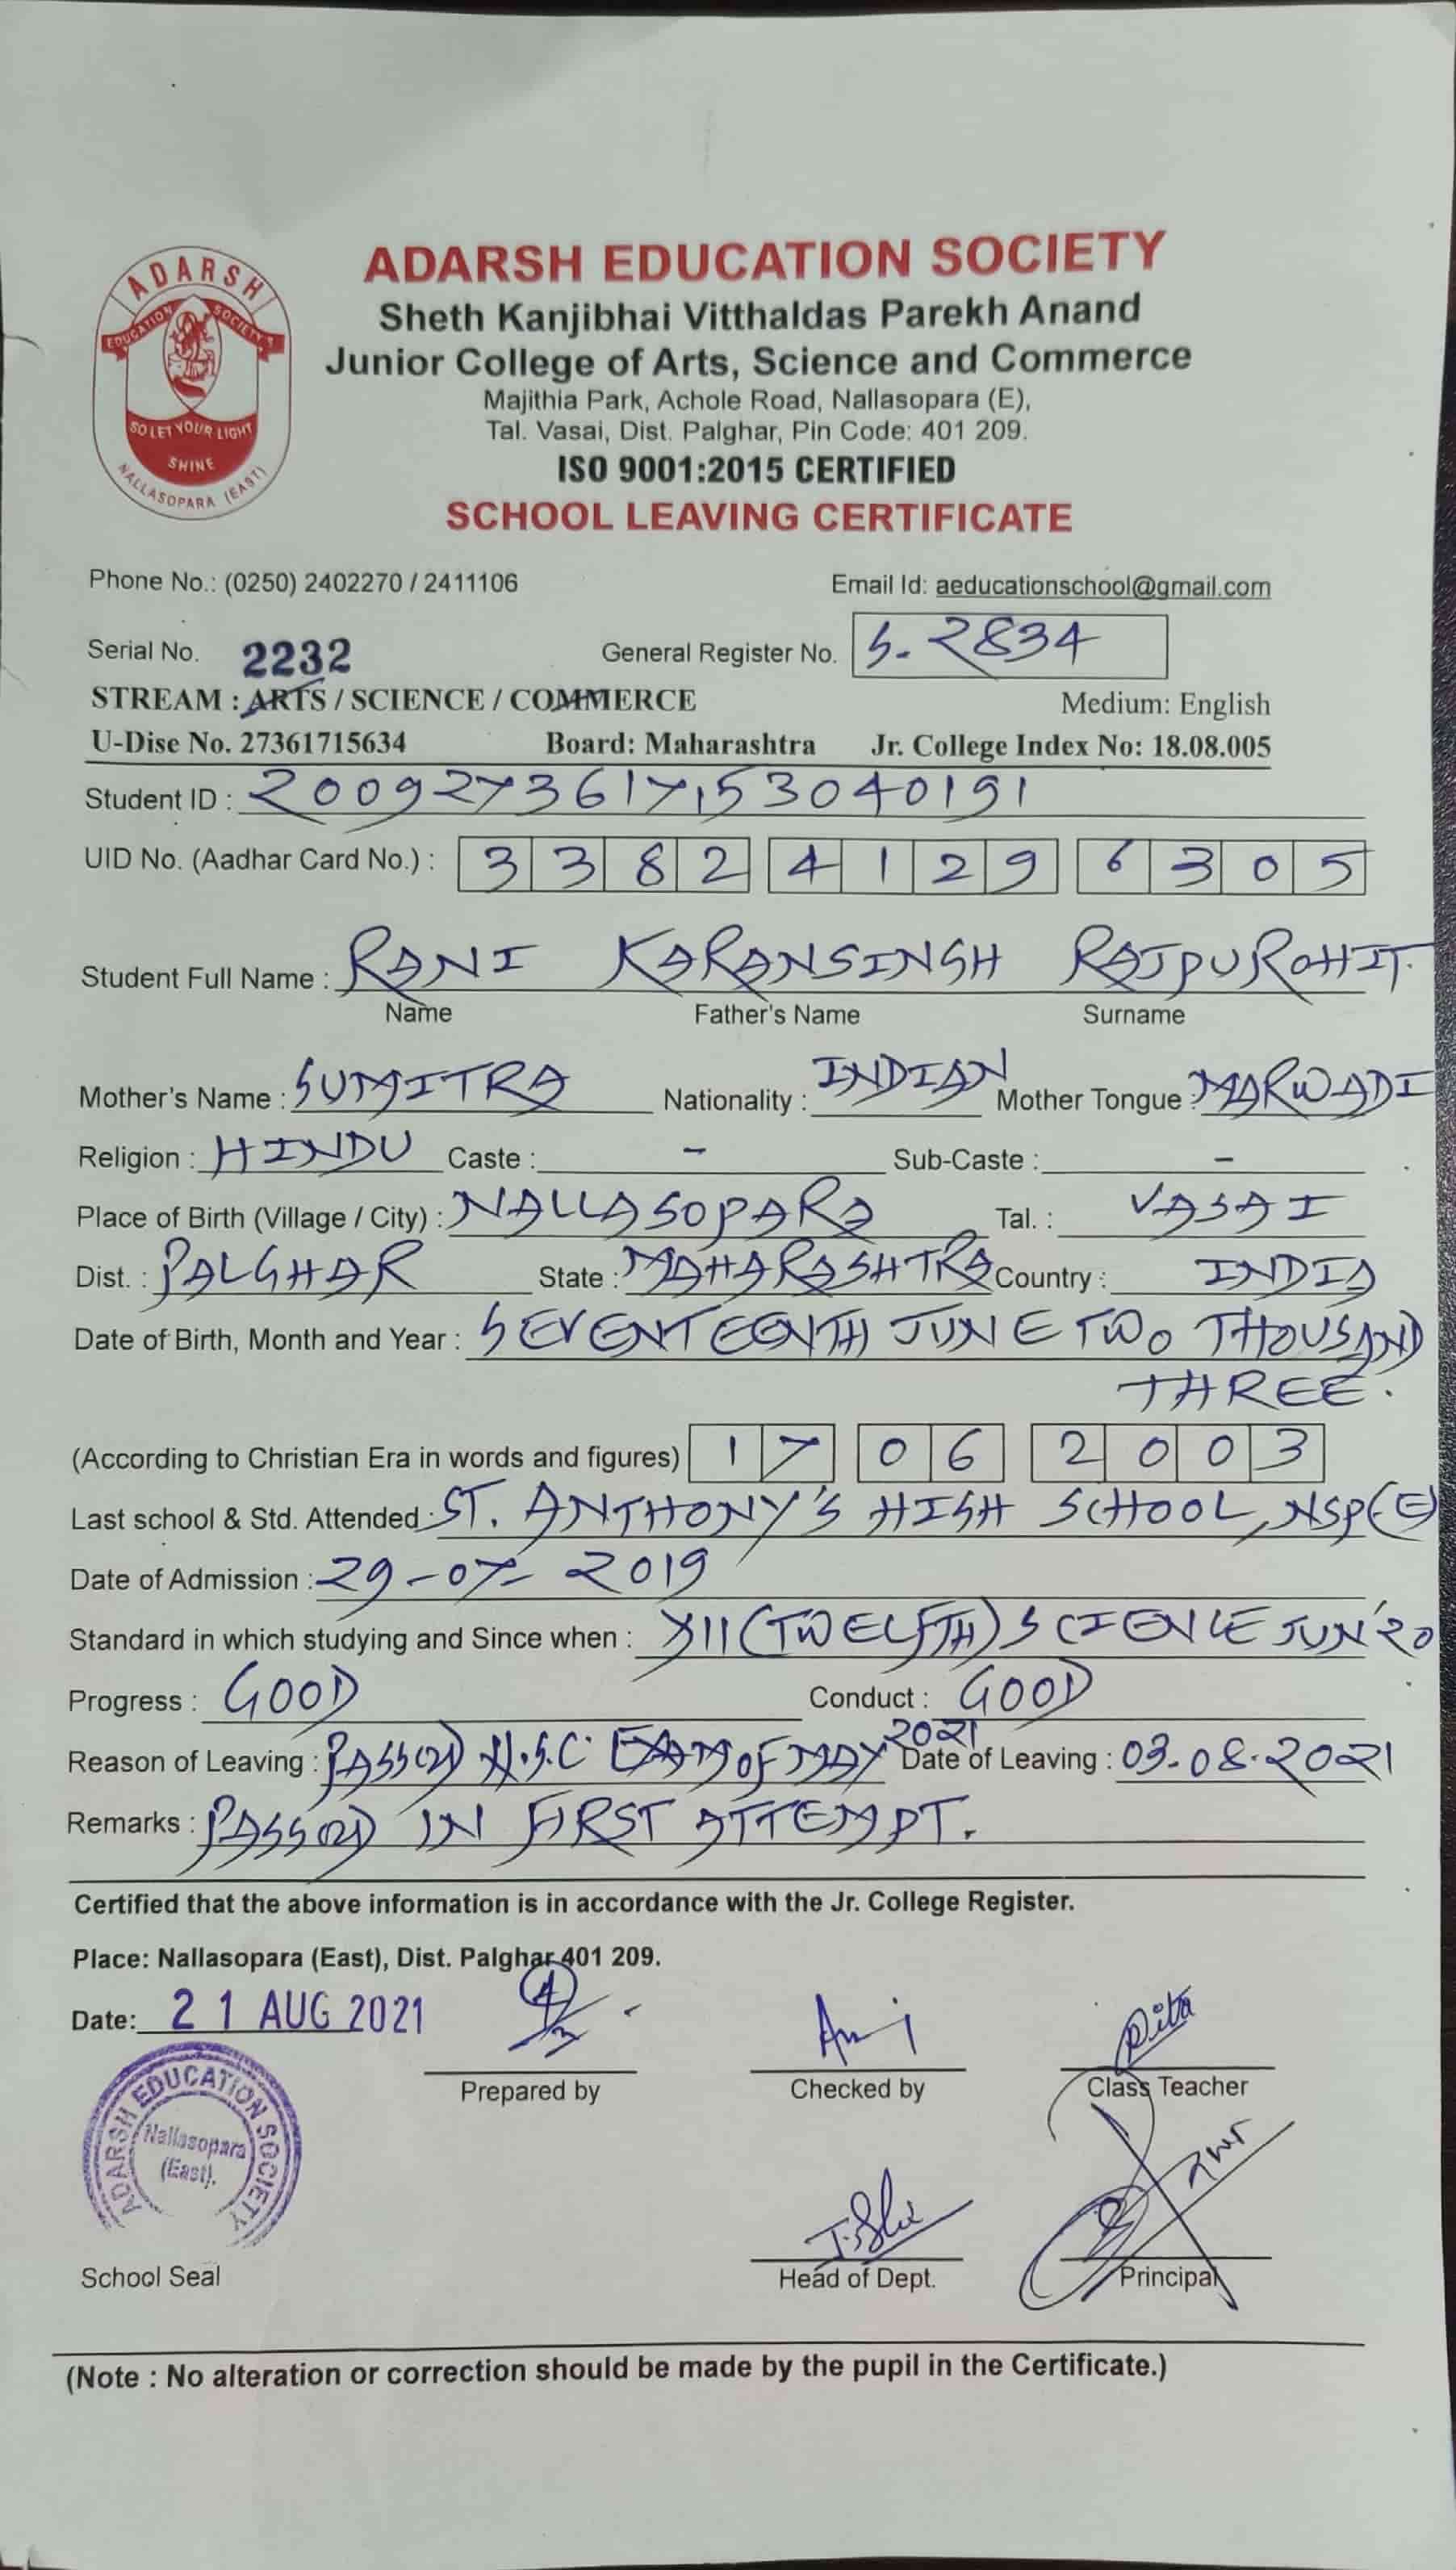 ADARSH
EDUCATION SOCIETY'S
SO LET YOUR LIGHT
SHINE
NALLASOPARA (EAST)
ADARSH EDUCATION SOCIETY
Sheth Kanjibhai Vitthaldas Parekh Anand
Junior College of Arts, Science and Commerce
Majithia Park, Achole Road, Nallasopara (E),
Tal. Vasai, Dist. Palghar, Pin Code: 401 209.
ISO 9001:2015 CERTIFIED
SCHOOL LEAVING CERTIFICATE
Phone No.: (0250) 2402270 / 2411106 Email Id: aeducationschool@gmail.com
Serial No. 2232 General Register No. S-2834
STREAM : ARTS / SCIENCE / COMMERCE Medium: English
U-Dise No. 27361715634 Board: Maharashtra Jr. College Index No: 18.08.005
Student ID : 2009273617153040191
UID No. (Aadhar Card No.) : 3382 4129 6305
Student Full Name : RANI KARANSINGH RAJPUROHIT.
Name Father's Name Surname
Mother's Name : SUMITRA Nationality : INDIAN Mother Tongue : MARWADI
Religion : HINDU Caste : - Sub-Caste : -
Place of Birth (Village / City) : NALLASOPARA Tal. : VASAI
Dist. : PALGHAR State : MAHARASHTRA Country : INDIA
Date of Birth, Month and Year : SEVENTEENTH JUNE TWO THOUSAND
THREE.
(According to Christian Era in words and figures) 17 06 2003
Last school & Std. Attended : ST. ANTHONY'S HIGH SCHOOL, NSP(E)
Date of Admission : 29-07-2019
Standard in which studying and Since when : XII (TWELFTH) SCIENCE JUN'20
Progress : GOOD Conduct : GOOD
Reason of Leaving : PASSED H.S.C. EXAM OF MAY 2021 Date of Leaving : 03.08.2021
Remarks : PASSED IN FIRST ATTEMPT.
Certified that the above information is in accordance with the Jr. College Register.
Place: Nallasopara (East), Dist. Palghar 401 209.
Date: 21 AUG 2021
Prepared by Checked by Class Teacher
ADARSH EDUCATION SOCIETY
Nallasopara
(East).
School Seal Head of Dept. Principal
(Note : No alteration or correction should be made by the pupil in the Certificate.)